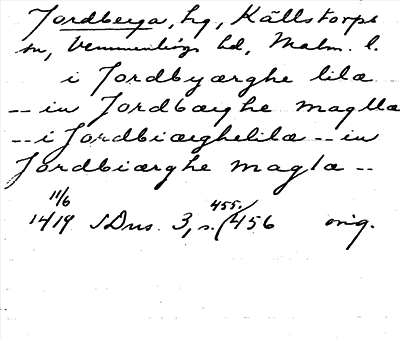 Jordberga, hg, Källstorps
sn, Vemmenhögs hd, Malm. l.
i Jordbyærghe lilæ
-- in Jordbærghe maglla
-- i Jordbiærghelilæ -- in
Jordbiærghe magla --
11/6
1419 SDns. 3, s. (455.) 456 orig.